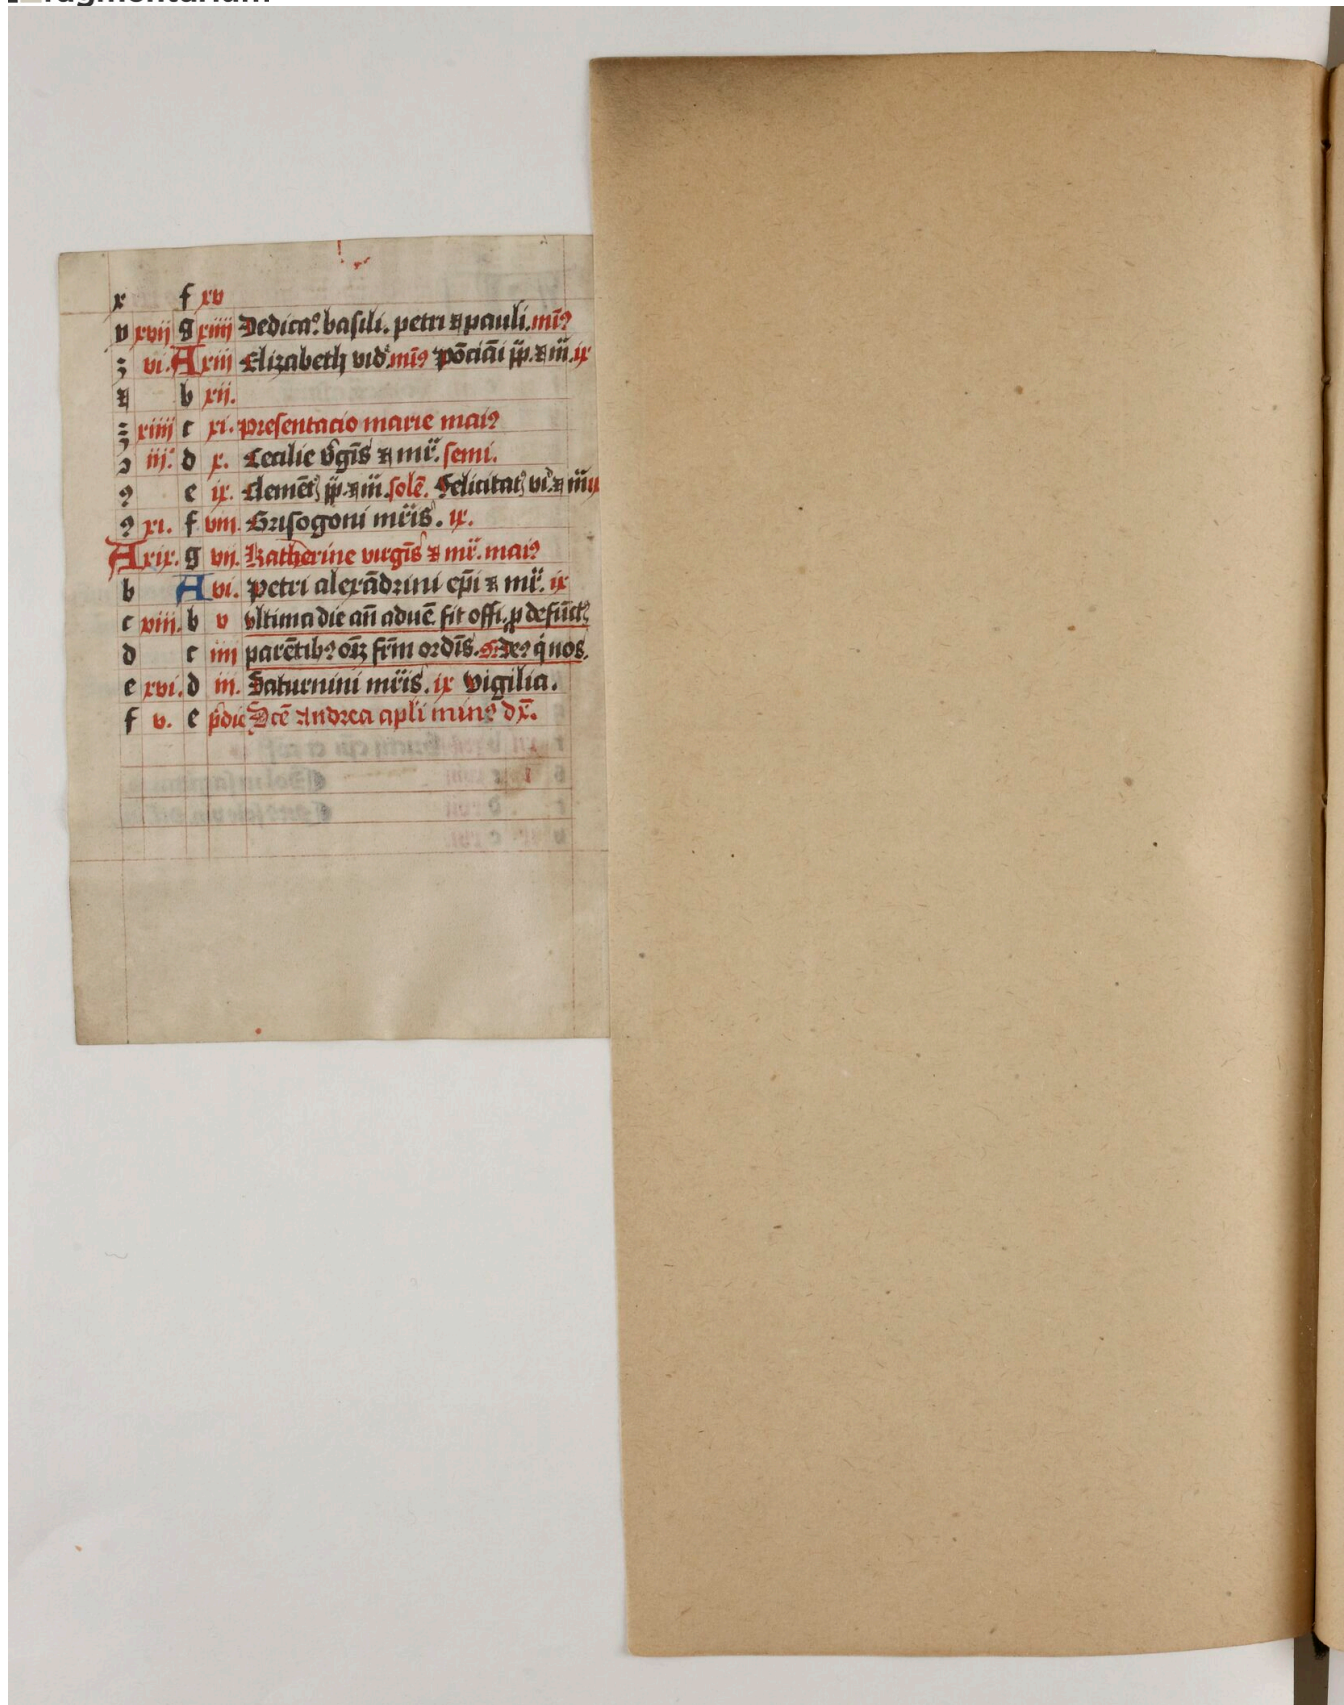 x f xv
v xvij g xiiii Dedica? basili. petri ⁊ pauli. mi?
vi. A xiii Elizabeth vid. mi? Pōciāi pp̄. ⁊ m̄. ix
⁊ b xii.
xiiii c xi. presentacio marie mai?
iij. d x. Cecilie v̄gīs ⁊ mr̄. semi.
ɔ e ix. Clemēt pp̄. ⁊ m̄. solē. Felicitat vi. ⁊ m̄
ꝯ xi. f viii. Grisogoni mr̄is. ix.
A xix. g vii. Katherine virgīs ⁊ mr̄. mai?
b A vi. Petri alexādrini ep̄i ⁊ mr̄. ix
c viii. b v vltima die an̄ aduē. fit offi. p defūct
d c iiii parētib? oīȝ fr̄m ordīs. De? q̇ nos.
e xvi. d iii. Saturnini mr̄is. ix vigilia.
f v. e p̄die Scē Andrea apli min? dx̄.